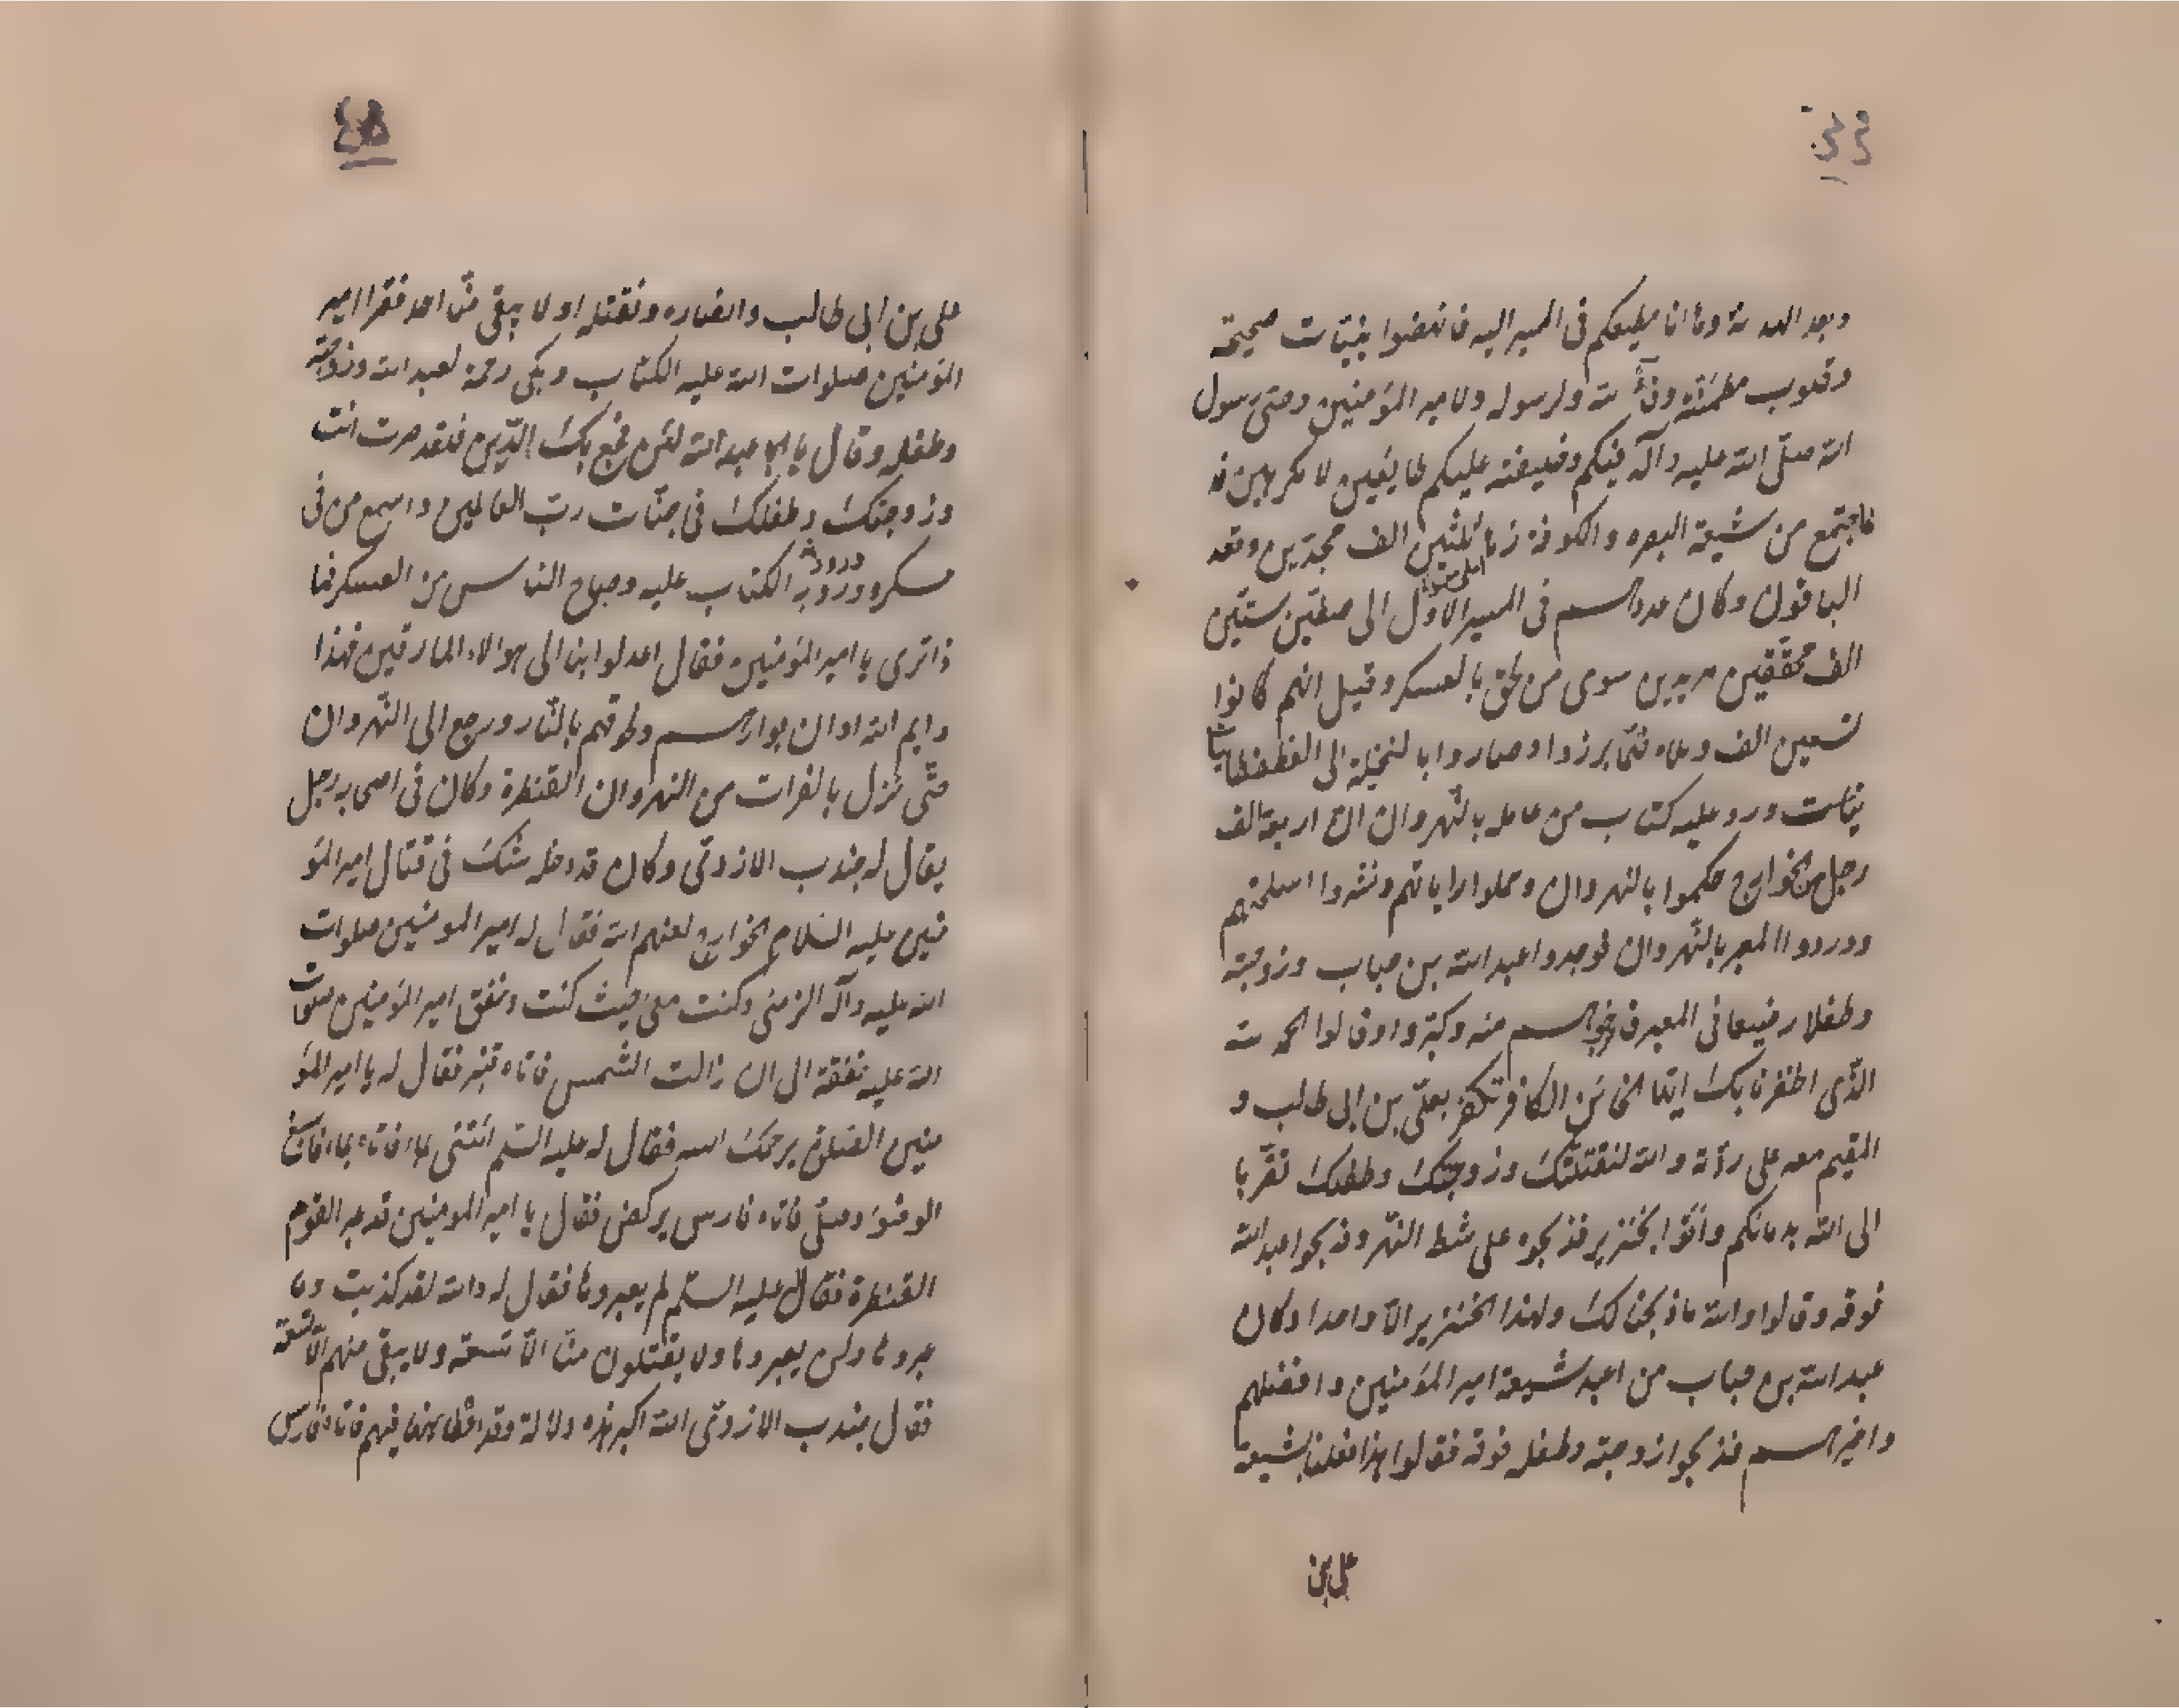 ٤٤
وبعد الهدى لله وما انا مليعكم فى المسير اليه فانهضوا بنيّات صحيحة
وقلوب مطمئنّة وفآء لله ولرسوله ولامير المؤمنين وحتى رسول
الله صلّى الله عليه وآله فيكم وخليفته عليكم طايعين لا مكرهين
فاجتمع من شيعة البصره والكوفة زها ثلثين الف مجدّين وقعد
الباقون وكان عددهم فى المسير الاول الى صفّين ستّين
الف محقّقين مريدين سوى من لحق بالعسكر وقيل انهم كانوا
تسعين الف فلمّا برزوا وصاروا بالنخيلة الى القطقطانيات
ورد عليه كتاب من عامله بالنّهروان انّ اربعة الف
رجل من الخوارج حكموا بالنهروان وحملوا راياتهم ونشروا اسلحتهم
ووردوا المعبر بالنّهروان فوجدوا عبد الله بن خباب وزوجته
وطفلا رضيعا فى المعبر فاخرجوهم منه وكبّروا وقالوا الحمد لله
الذّى اظفرنا بك ايّها الخائن الكافر تكفر بعلىّ بن ابى طالب و
المقيم معه على رأيه والله لنقتلنّك وزوجتك وطفلك تقرّبا
الى الله بدمائكم وأتوا بخنزير فذبحوه على شط النّهر وذبحوا عبد الله
فوقه وقالوا والله ما ذبحنا لك ولهذا الخنزير الّا واحدا وكان
عبد الله بن خباب من اعبد شيعة امير المؤمنين وافضلهم
واخيرهم فذبحوا زوجته وطفله فوقه فقالوا هذا فعلنا بشيعة
على بن
٤٥
على بن ابى طالب وانصاره ونقتله او لا يبقى منّا احد فقرا امير
المؤمنين صلوات الله عليه الكتاب وبكى رحمة لعبد الله وزوجته
وطفله وقال يا ابا عبد الله لئن فجع بك الدّين فلقد صرت انت
وزوجتك وطفلك فى جنّات ربّ العالمين واسمع من فى
عسكره وروده الكتاب عليه وصاح الناس من العسكر فما
ذا ترى يا امير المؤمنين فقال اعدلوا بنا الى هؤلاء المارقين فهذا
وايم الله اوان بوارهم ولحوقهم بالنّار ورجع الى النّهروان
حتّى نزل بالفرات من النهروان القنطرة وكان فى اصحابه رجل
يقال له جندب الازدىّ وكان قد دخله شك فى قتال امير المؤ
منين عليه السّلام الخوارج لعنهم الله فقال له امير المومنين صلوات
الله عليه وآله الزمنى وكنت معى حيث كنت وخفق امير المؤمنين صلوات
الله عليه خفقة الى ان زالت الشّمس فاتاه قنبر فقال له يا امير المؤ
منين الصّلوة يرحمك الله فقال له عليه السّلم ائتنى بماء فاتاه بماء فاسبغ
الوضوء وصلّى فاتاه فارس يركض فقال يا امير المومنين قد عبر القوم
القنطرة فقال عليه السلم لم يعبروها فقال له والله لقد كذبت وما
عبروها ولن يعبروها ولا يقتلون منّا الّا تسعة ولا يبقى منهم الّا تسعة
فقال جندب الازدىّ الله اكبر هذه دلالة وقد فيهم فاتاه فارس